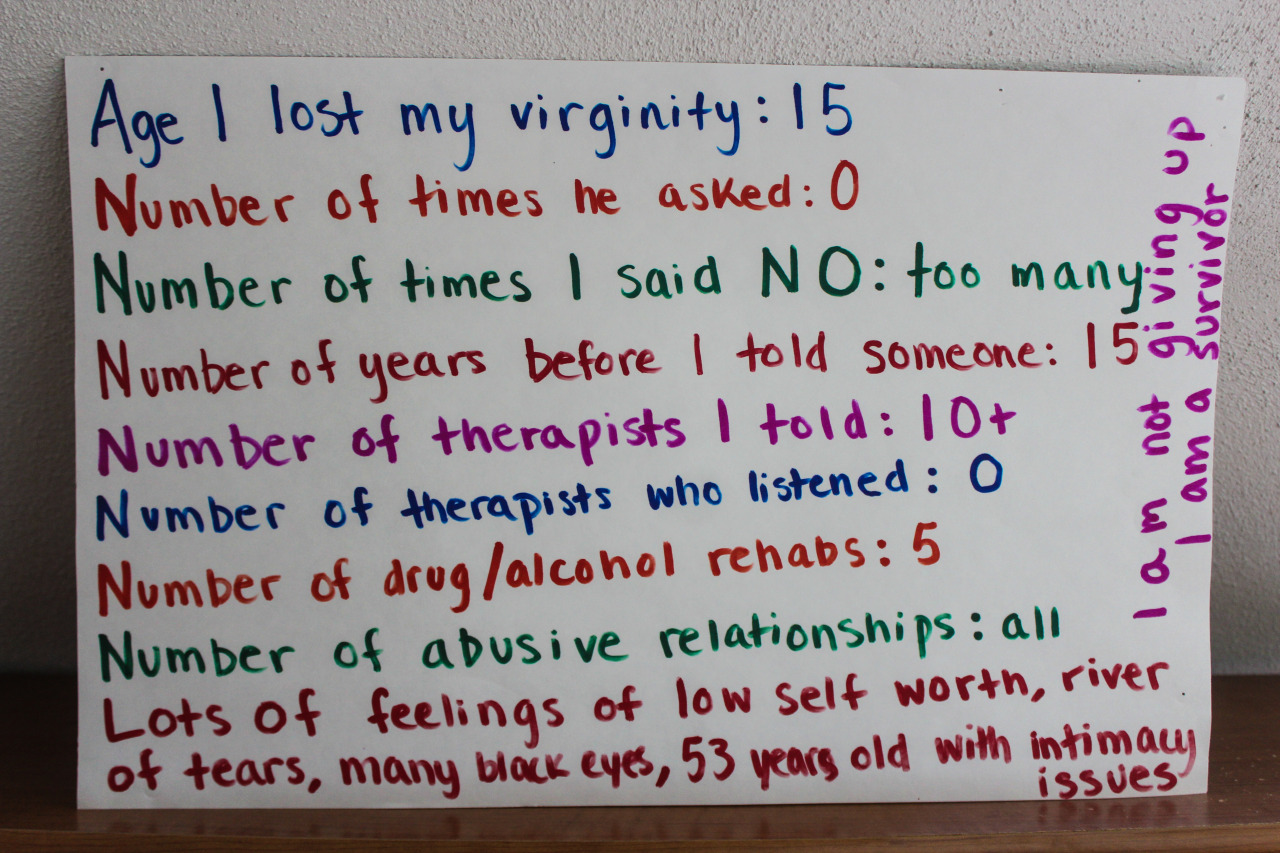 Age I lost my virginity: 15
Number of times he asked: 0
Number of times I said NO: too many
Number of years before I told someone: 15
Number of therapists I told: 10+
Number of therapists who listened: 0
Number of drug/alcohol rehabs: 5
Number of abusive relationships: all
Lots of feelings of low self worth, river
of tears, many black eyes, 53 years old with intimacy
issues
I am not giving up
I am a survivor